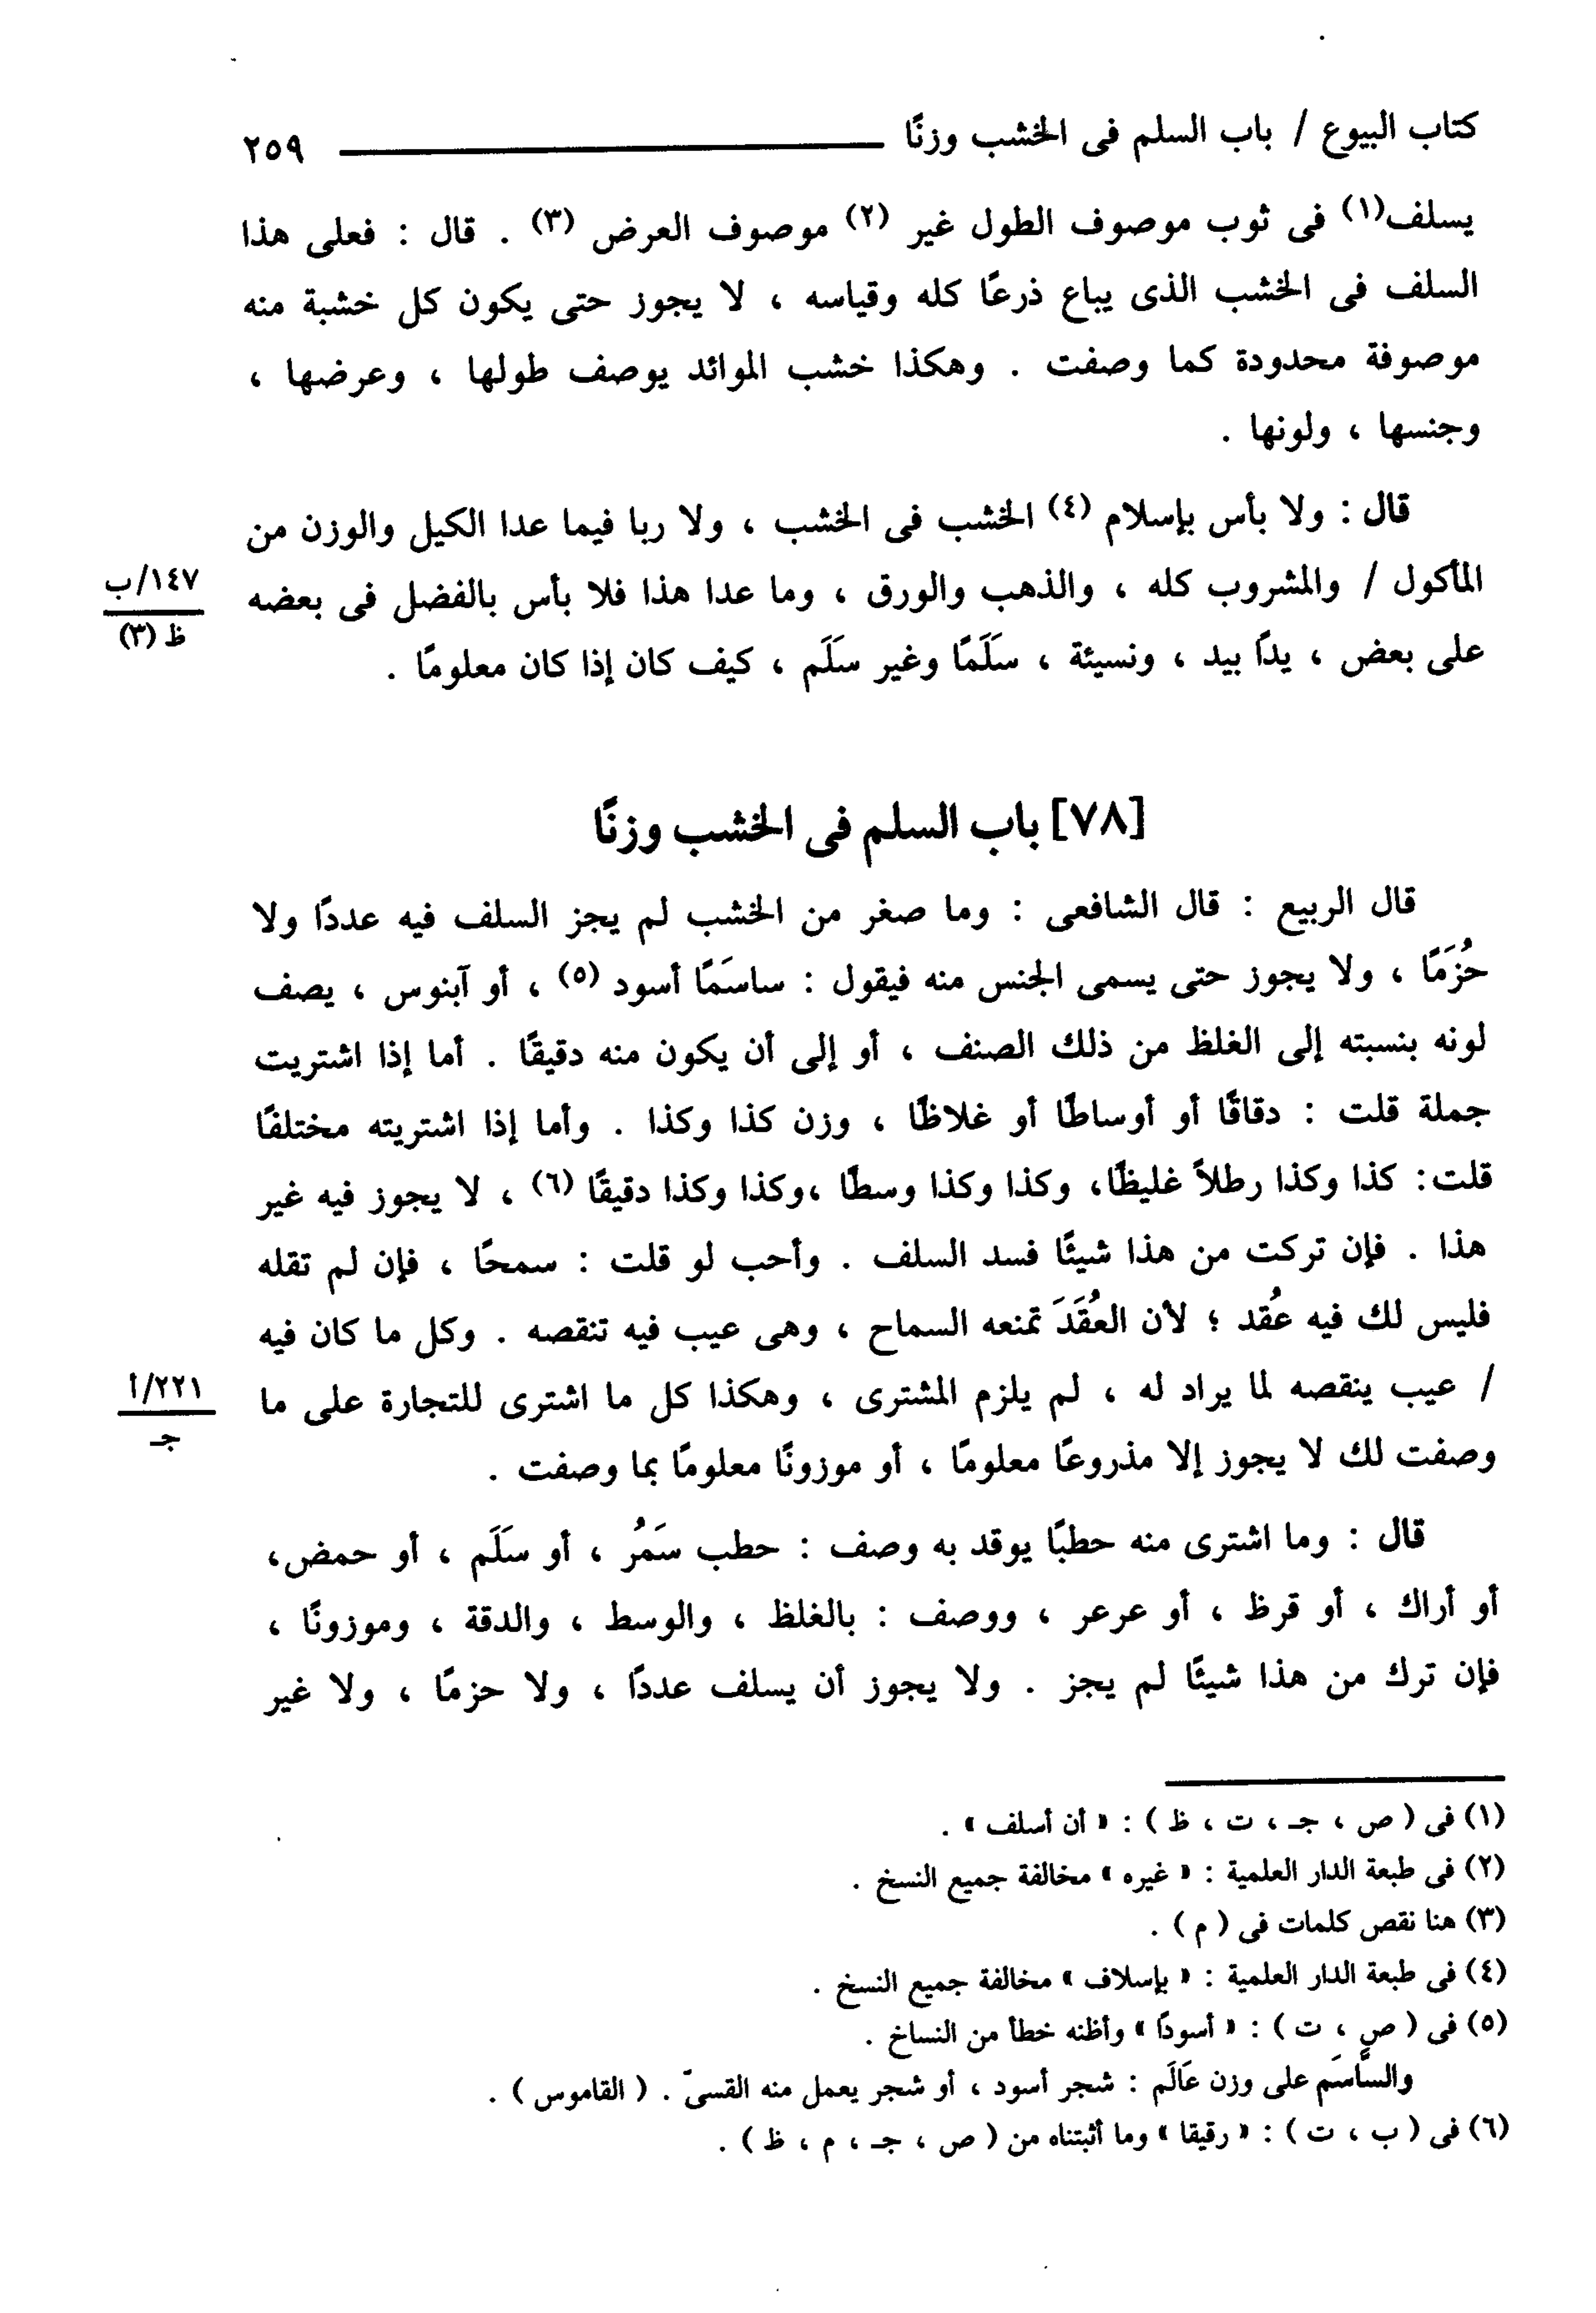 كتاب البيوع / باب السلم فى الخشب وزنًا ٢٥٩
يسلف(١) فى ثوب موصوف الطول غير (٢) موصوف العرض (٣) . قال : فعلى هذا
السلف فى الخشب الذى يباع ذرعًا كله وقياسه ، لا يجوز حتى يكون كل خشبة منه
موصوفة محدودة كما وصفت . وهكذا خشب الموائد يوصف طولها ، وعرضها ،
وجنسها ، ولونها .
قال : ولا بأس بإسلام (٤) الخشب فى الخشب ، ولا ربا فيما عدا الكيل والوزن من
المأكول / والمشروب كله ، والذهب والورق ، وما عدا هذا فلا بأس بالفضل فى بعضه
١٤٧/ب
ظ (٣)
على بعض ، يدًا بيد ، ونسيئة ، سَلَمًا وغير سَلَم ، كيف كان إذا كان معلومًا .
[٧٨] باب السلم فى الخشب وزنًا
قال الربيع : قال الشافعى : وما صغر من الخشب لم يجز السلف فيه عددًا ولا
حُزَمًا ، ولا يجوز حتى يسمى الجنس منه فيقول : ساسَمًا أسود (٥) ، أو آبنوس ، يصف
لونه بنسبته إلى الغلظ من ذلك الصنف ، أو إلى أن يكون منه دقيقًا . أما إذا اشتريت
جملة قلت : دقاقًا أو أوساطًا أو غلاظًا ، وزن كذا وكذا . وأما إذا اشتريته مختلفًا
قلت: كذا وكذا رطلاً غليظًا، وكذا وكذا وسطًا ،وكذا وكذا دقيقًا (٦) ، لا يجوز فيه غير
هذا . فإن تركت من هذا شيئًا فسد السلف . وأحب لو قلت : سمحًا ، فإن لم تقله
فليس لك فيه عُقد ؛ لأن العُقَدَ تمنعه السماح ، وهى عيب فيه تنقصه . وكل ما كان فيه
/ عيب ينقصه لما يراد له ، لم يلزم المشترى ، وهكذا كل ما اشترى للتجارة على ما
٢٢١/أ
جـ
وصفت لك لا يجوز إلا مذروعًا معلومًا ، أو موزونًا معلومًا بما وصفت .
قال : وما اشترى منه حطبًا يوقد به وصف : حطب سَمُر ، أو سَلَم ، أو حمض،
أو أراك ، أو قرظ ، أو عرعر ، ووصف : بالغلظ ، والوسط ، والدقة ، وموزونًا ،
فإن ترك من هذا شيئًا لم يجز . ولا يجوز أن يسلف عددًا ، ولا حزمًا ، ولا غير
(١) فى ( ص ، جـ ، ت ، ظ ) : « أن أسلف » .
(٢) فى طبعة الدار العلمية : « غيره » مخالفة جميع النسخ .
(٣) هنا نقص كلمات فى ( م ) .
(٤) فى طبعة الدار العلمية : « بإسلاف » مخالفة جميع النسخ .
(٥) فى ( ص ، ت ) : « أسودًا » وأظنه خطأ من النساخ .
والسَّاسَم على وزن عَالَم : شجر أسود ، أو شجر يعمل منه القسىّ . ( القاموس ) .
(٦) فى ( ب ، ت ) : « رقيقا » وما أثبتناه من ( ص ، جـ ، م ، ظ ) .